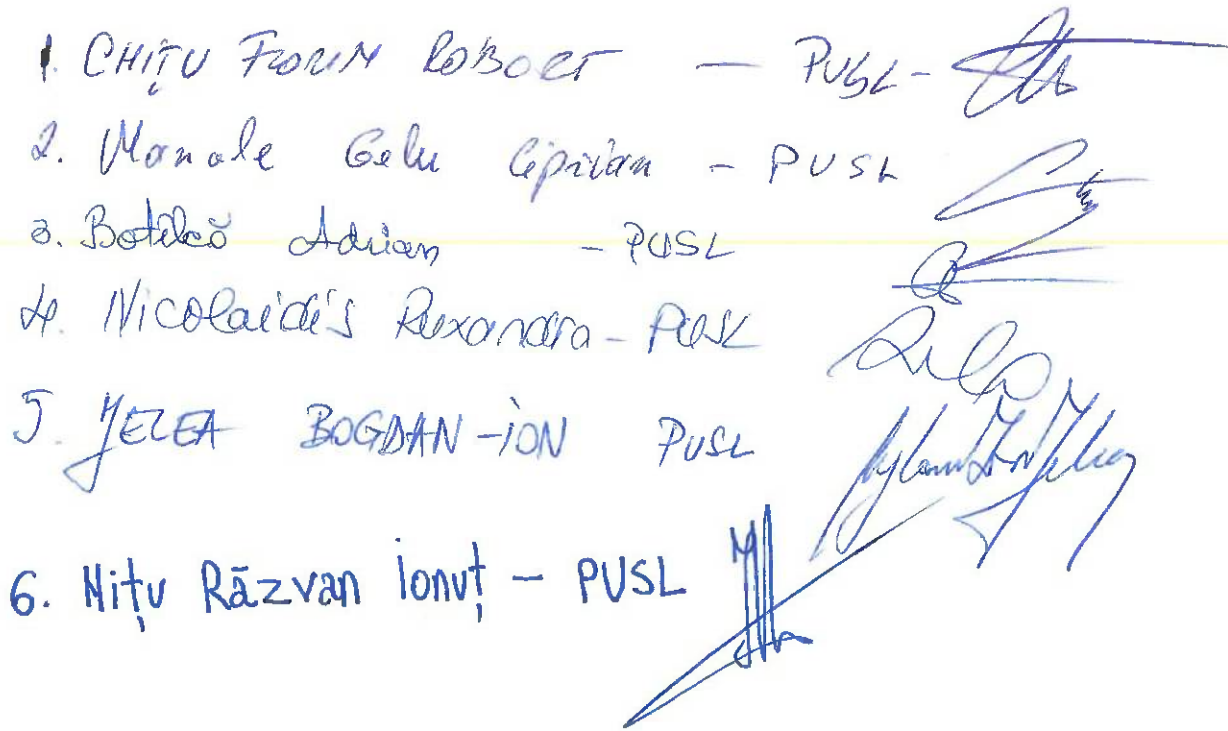 1. CHIȚU FLORIN ROBERT — PUSL -
2. Manole Gelu Ciprian - PUSL
3. Botilcă Adrian - PUSL
4. Nicolaidis Ruxandra - PUSL
5. JELEA BOGDAN-ION PUSL
6. Nițu Răzvan Ionuț - PUSL